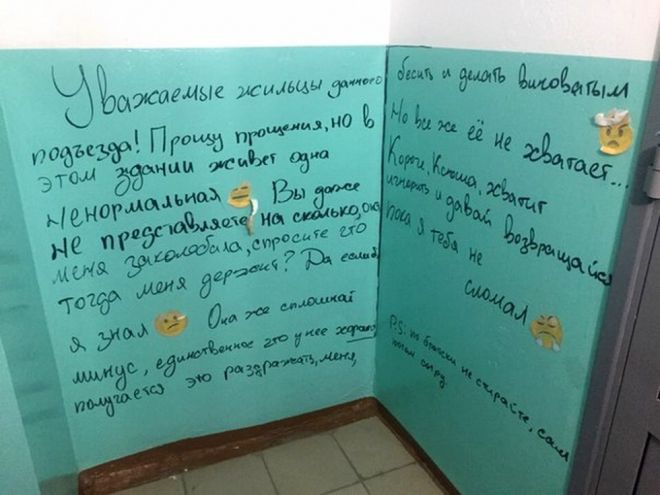 Уважаемые жильцы данного
подъезда! Прошу прощения, но в
этом здании живет одна
ненормальная Вы даже
не представляете на сколько, она
меня заколебала, спросите что
тогда меня держит? Да если б
я знал Она же сплошной
минус, единственное что у нее хорошо
получается это раздражать, меня,
бесить и делать виноватым
Но все же её не хватает...
Короче, Ксюша, хватит
игнорить и давай возвращайся
пока я тебя не
сломал
P.S: по братски не стирайте, сам
потом сотру.